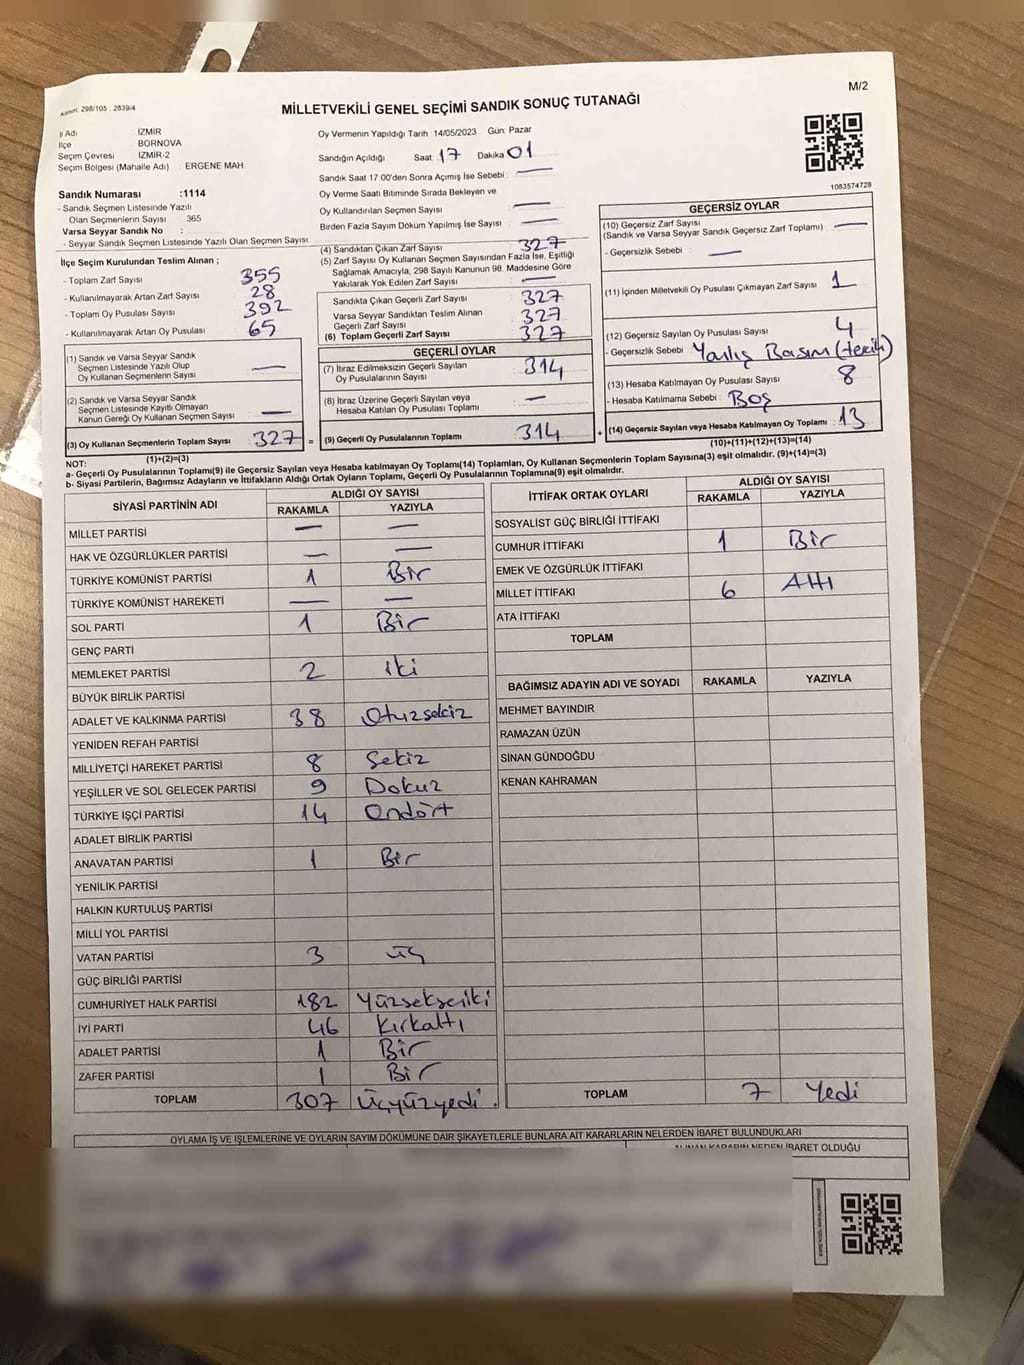 M/2
Kanun: 298/105 , 2839/4
MİLLETVEKİLİ GENEL SEÇİMİ SANDIK SONUÇ TUTANAĞI
İl Adı İZMİR
İlçe BORNOVA
Seçim Çevresi İZMİR-2
Seçim Bölgesi (Mahalle Adı) : ERGENE MAH
Sandık Numarası :1114
- Sandık Seçmen Listesinde Yazılı
Olan Seçmenlerin Sayısı 365
Varsa Seyyar Sandık No :
- Seyyar Sandık Seçmen Listesinde Yazılı Olan Seçmen Sayısı
İlçe Seçim Kurulundan Teslim Alınan ;
- Toplam Zarf Sayısı 355
- Kullanılmayarak Artan Zarf Sayısı 28
- Toplam Oy Pusulası Sayısı 392
- Kullanılmayarak Artan Oy Pusulası 65
(1) Sandık ve Varsa Seyyar Sandık
Seçmen Listesinde Yazılı Olup
Oy Kullanan Seçmenlerin Sayısı —
(2) Sandık ve Varsa Seyyar Sandık
Seçmen Listesinde Kayıtlı Olmayan
Kanun Gereği Oy Kullanan Seçmen Sayısı —
(3) Oy Kullanan Seçmenlerin Toplam Sayısı 327 =
(1)+(2)=(3)
Oy Vermenin Yapıldığı Tarih :14/05/2023 Gün: Pazar
Sandığın Açıldığı Saat 17 Dakika 01
Sandık Saat 17 00'den Sonra Açımış İse Sebebi : —
Oy Verme Saati Bitiminde Sırada Bekleyen ve
Oy Kullandırılan Seçmen Sayısı —
Birden Fazla Sayım Döküm Yapılmış İse Sayısı —
(4) Sandıktan Çıkan Zarf Sayısı 327
(5) Zarf Sayısı Oy Kullanan Seçmen Sayısından Fazla İse, Eşitliği
Sağlamak Amacıyla, 298 Sayılı Kanunun 98. Maddesine Göre
Yakılarak Yok Edilen Zarf Sayısı —
Sandıkta Çıkan Geçerli Zarf Sayısı 327
Varsa Seyyar Sandıktan Teslim Alınan
Geçerli Zarf Sayısı 327
(6) Toplam Geçerli Zarf Sayısı 327
GEÇERLİ OYLAR
(7) İtiraz Edilmeksizin Geçerli Sayılan
Oy Pusulalarının Sayısı 314
(8) İtiraz Üzerine Geçerli Sayılan veya
Hesaba Katılan Oy Pusulası Toplamı —
(9) Geçerli Oy Pusulalarının Toplamı 314 +
1083574728
GEÇERSİZ OYLAR
(10) Geçersiz Zarf Sayısı
(Sandık ve Varsa Seyyar Sandık Geçersiz Zarf Toplamı) —
- Geçersizlik Sebebi : —
(11) İçinden Milletvekili Oy Pusulası Çıkmayan Zarf Sayısı 1
(12) Geçersiz Sayılan Oy Pusulası Sayısı 4
- Geçersizlik Sebebi Yanlış Basım (tercih)
(13) Hesaba Katılmayan Oy Pusulası Sayısı 8
- Hesaba Katılmama Sebebi : Boş
(14) Geçersiz Sayılan veya Hesaba Katılmayan Oy Toplamı 13
(10)+(11)+(12)+(13)=(14)
NOT:
a- Geçerli Oy Pusulalarının Toplamı(9) ile Geçersiz Sayılan veya Hesaba katılmayan Oy Toplamı(14) Toplamları, Oy Kullanan Seçmenlerin Toplam Sayısına(3) eşit olmalıdır. (9)+(14)=(3)
b- Siyasi Partilerin, Bağımsız Adayların ve İttifakların Aldığı Ortak Oyların Toplamı, Geçerli Oy Pusulalarının Toplamına(9) eşit olmalıdır.
SİYASİ PARTİNİN ADI ALDIĞI OY SAYISI
RAKAMLA YAZIYLA
MİLLET PARTİSİ — —
HAK VE ÖZGÜRLÜKLER PARTİSİ — —
TÜRKİYE KOMÜNİST PARTİSİ 1 Bir
TÜRKİYE KOMÜNİST HAREKETİ — —
SOL PARTİ 1 Bir
GENÇ PARTİ
MEMLEKET PARTİSİ 2 iki
BÜYÜK BİRLİK PARTİSİ
ADALET VE KALKINMA PARTİSİ 38 Otuzsekiz
YENİDEN REFAH PARTİSİ
MİLLİYETÇİ HAREKET PARTİSİ 8 Sekiz
YEŞİLLER VE SOL GELECEK PARTİSİ 9 Dokuz
TÜRKİYE İŞÇİ PARTİSİ 14 Ondört
ADALET BİRLİK PARTİSİ
ANAVATAN PARTİSİ 1 Bir
YENİLİK PARTİSİ
HALKIN KURTULUŞ PARTİSİ
MİLLİ YOL PARTİSİ
VATAN PARTİSİ 3 üç
GÜÇ BİRLİĞİ PARTİSİ
CUMHURİYET HALK PARTİSİ 182 Yüzsekseniki
İYİ PARTİ 46 Kırkaltı
ADALET PARTİSİ 1 Bir
ZAFER PARTİSİ 1 Bir
TOPLAM 307 Üçyüzyedi.
İTTİFAK ORTAK OYLARI ALDIĞI OY SAYISI
RAKAMLA YAZIYLA
SOSYALİST GÜÇ BİRLİĞİ İTTİFAKI
CUMHUR İTTİFAKI 1 Bir
EMEK VE ÖZGÜRLÜK İTTİFAKI
MİLLET İTTİFAKI 6 Altı
ATA İTTİFAKI
TOPLAM
BAĞIMSIZ ADAYIN ADI VE SOYADI RAKAMLA YAZIYLA
MEHMET BAYINDIR
RAMAZAN ÜZÜN
SİNAN GÜNDOĞDU
KENAN KAHRAMAN
TOPLAM 7 Yedi
OYLAMA İŞ VE İŞLEMLERİNE VE OYLARIN SAYIM DÖKÜMÜNE DAİR ŞİKAYETLERLE BUNLARA AİT KARARLARIN NELERDEN İBARET BULUNDUKLARI
ALINAN KARARIN NEDEN İBARET OLDUĞU